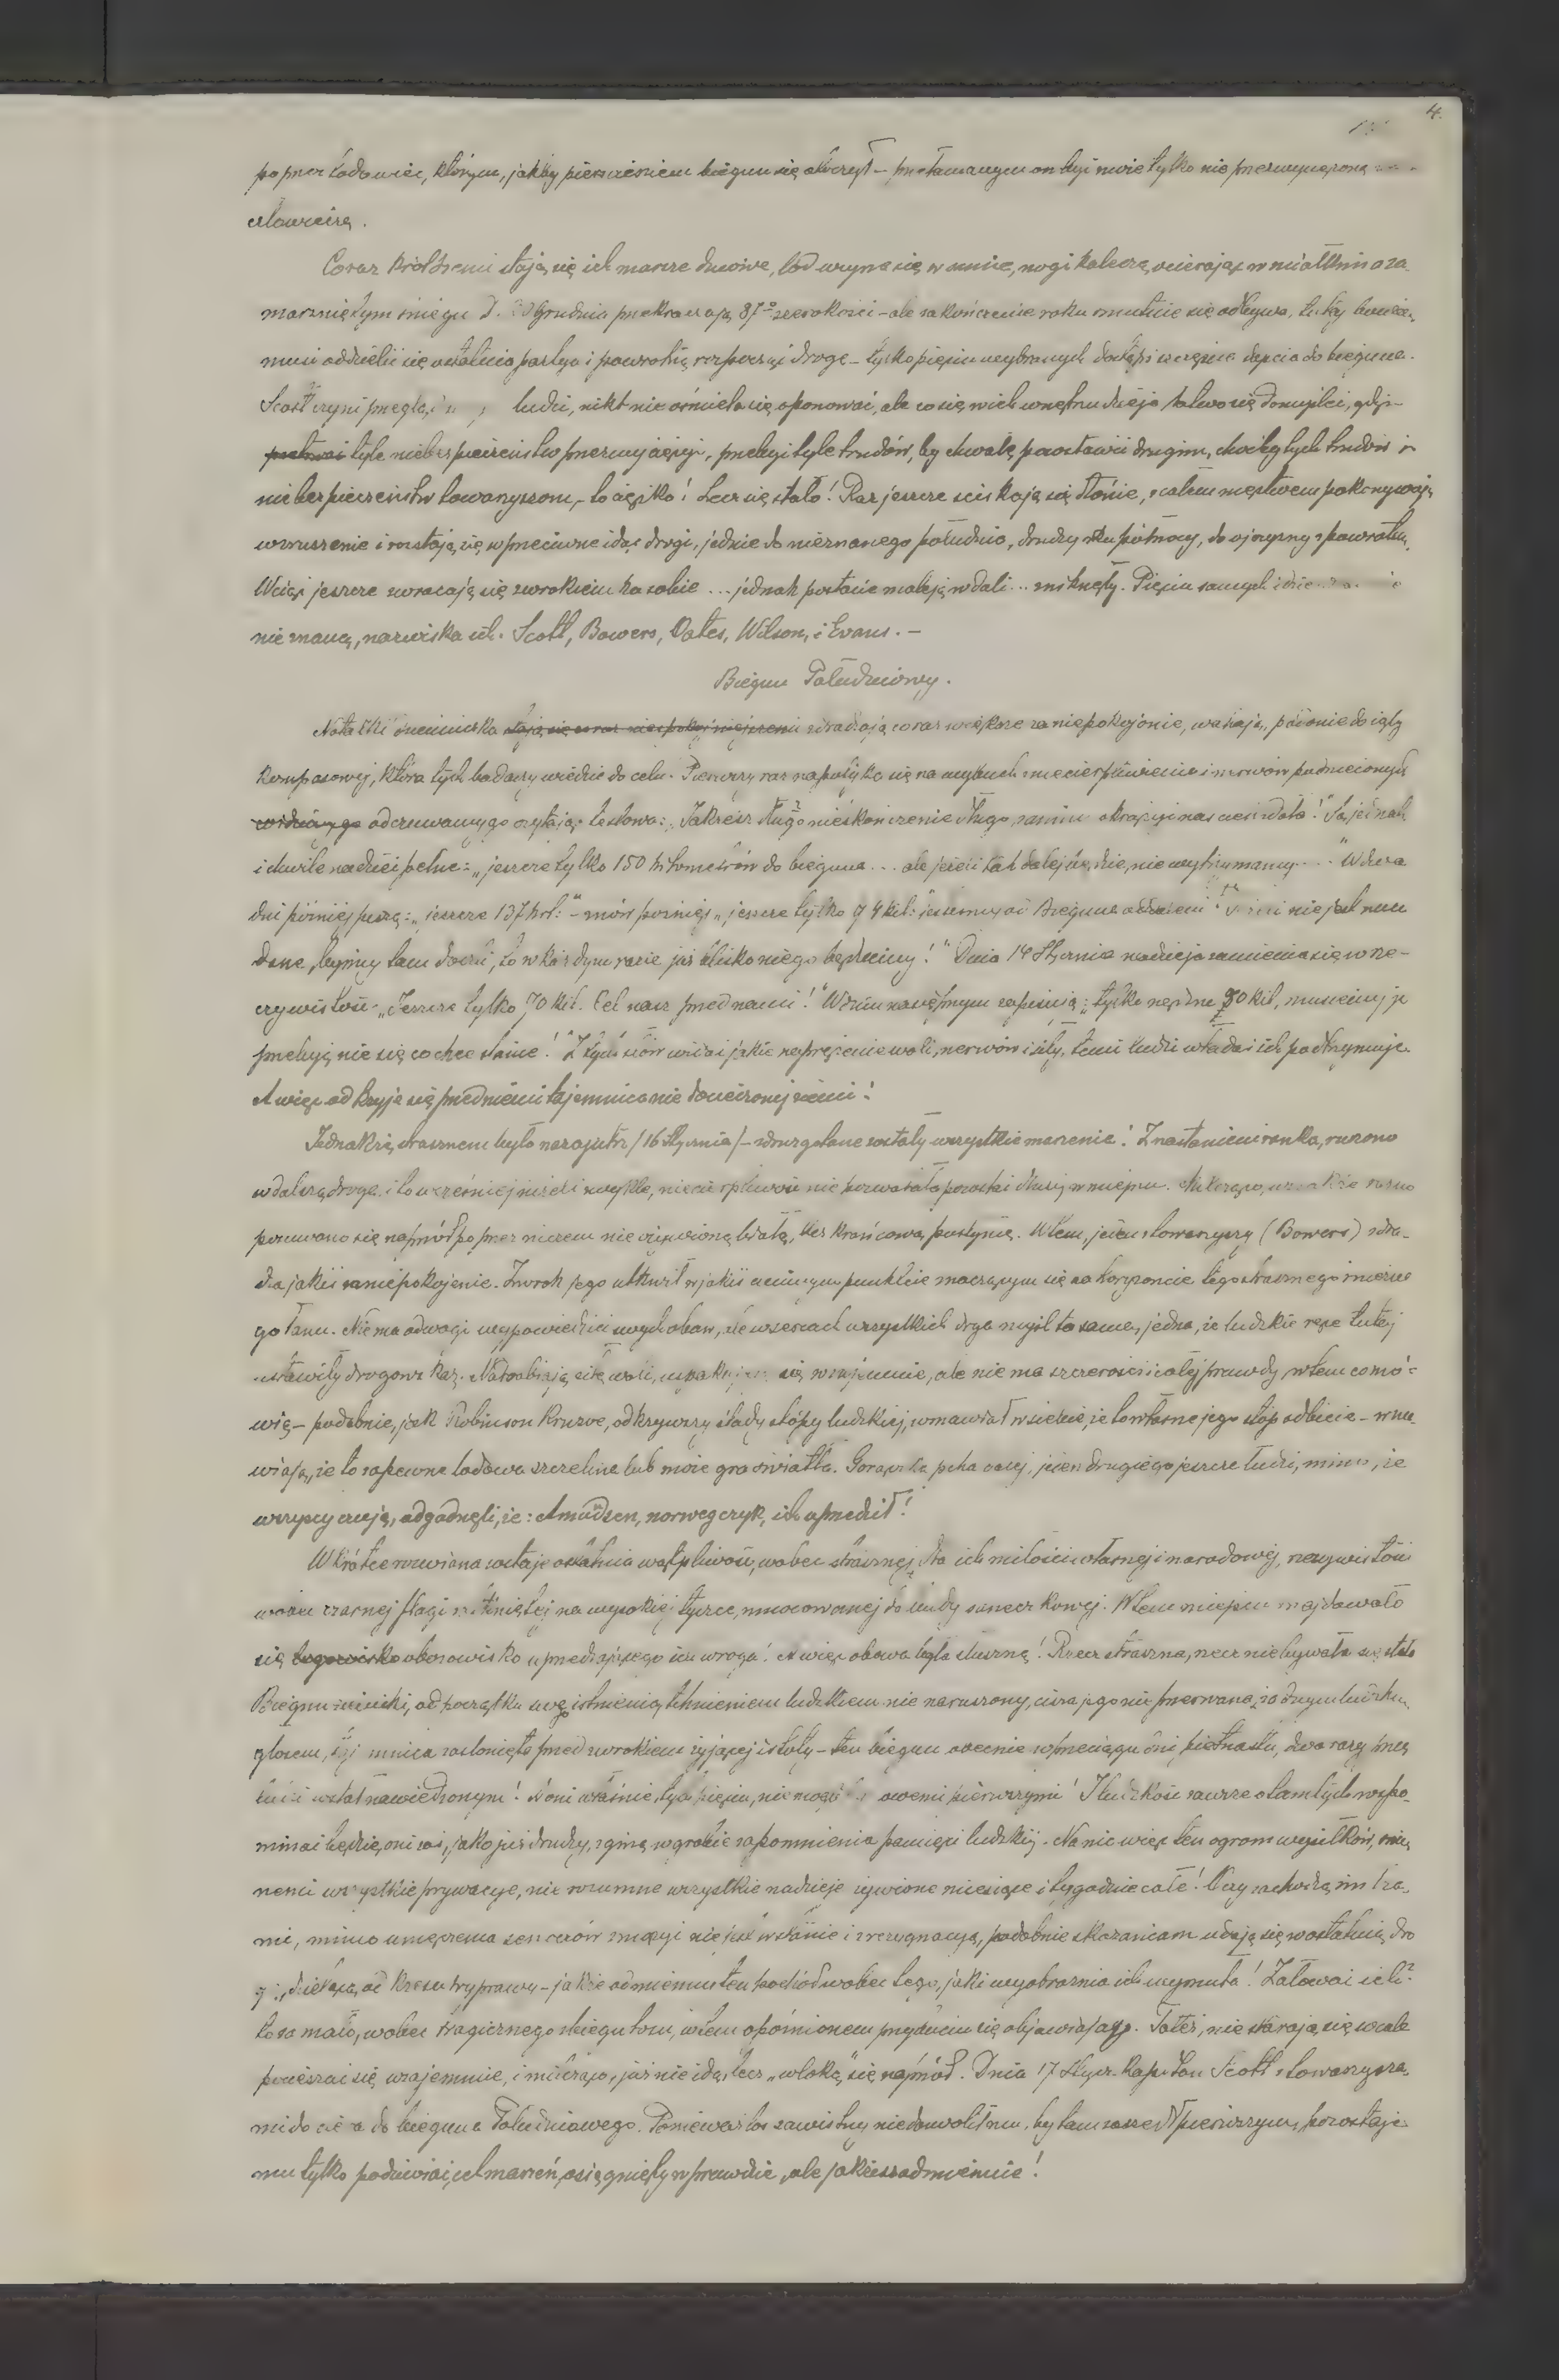 4.
poprzez lodowiec, którym, jakby pierścieniem biegun się otoczył – przełamanym on być może tylko nieprzezwyciężoną
człowieczą.
Coraz krótszemi stają się ich marsze dniowe, lód wrzyna się w sanie, nogi kaleczą, ocierając w miałkim a za
marzniętym śniegu D. 30 Grudnia przekraczają 87º szerokości – ale zakończenie roku smutnie się odbywa, tutaj bowiem
musi oddzielić się ostatnia partya i powrotną rozpocząć drogę – tylko pięciu wybranych dostąpi szczęścia dojścia do bieguna.
Scott czyni ludzi, nikt nie ośmiela się oponować, ale co się w ich wnętrzu dzieje łatwo się domyśleć, gdyż
tyle niebezpieczeństw przezwyciężyć, przebyć tyle trudów, by chwałę pozostawić drugim, choćby tych trudów i
niebezpieczeństw towarzyszom, – to ciężko! Lecz się stało! Raz jeszcze ściskają się dłonie, z całem męstwem pokonywają
wzruszenie i rozstają się w przeciwne idąc drogi, jedzie do nieznanego południa, drudzy ku północy, do ojczyzny z powrotem.
Wciąż jeszcze zwracają się wzrokiem ku sobie ... jednak postacie maleją w dali ... zniknęły. Pięciu samych idzie
nieznaną, nazwiska ich: Scott, Bowers, Oates, Wilson, i Evans. –
Biegun Południowy.
Notatki dziennika stają się coraz niespokojniejszemi zdradzają coraz większe zaniepokojenie, wahają, podobnie do igły
kompasowej, która tych badaczy wiedzie do celu. Pierwszy raz napotyka się na wybuch zniecierpliwienia i nerwów podnieconych
odczuwanego czytając te słowa: „Jakżeż długo nieskończenie długo, zanim okrążyć nas cień dała!" Są jednak
i chwile nadziei pełne: „jeszcze tylko 150 kilometrów do bieguna ... ale jeżeli tak dalej będzie, nie wytrzymamy...." W dwa
dni później piszą: „jeszcze 137 kil:" – mów później „jeszcze tylko 94 kil: jesteśmy od Bieguna oddaleni nie jest nam
dane, byśmy tam doszli, to w każdym razie już blisko niego będziemy!" Dnia 14 Stycznia nadzieja zamienia się w rze-
czywistość. „Jeszcze tylko 70 kil. Cel nasz przed nami!" W dniu następnym zapisują: „tylko nędzne 50 kil, musimy je
przebyć, nie się co chce stanie!" Z tych słów widać jakie naprężenie woli, nerwów i siły, temi ludźmi włada i ich podtrzymuje.
A więc odkryje się przed niemi tajemnica nie docieczonej ziemi!
Jednakże strasznem było nazajutrz /16 Stycznia/ – zdruzgotane zostały wszystkie marzenia! Z nastaniem ranka, ruszono
w dalszą drogę i to wcześniej niżeli zwykle, niecierpliwość nie pozwalała pozostać dłużej w miejscu. Milcząco, wszakże rażno
posuwano się naprzód poprzez niczem nie ożywioną białą, bez krańcową pustynię. Wtem, jeden z towarzyszy (Bowers) zdra-
dza jakieś zaniepokojenie. Wzrok jego utkwił w jakiś ciemnym punkcie znaczącym się na horyzoncie tego strasznego śnieżne
go łanu. Nie ma odwagi wypowiedzieć swych obaw, ale w sercach wszystkich drga myśl ta sama, jedna, że ludzkie ręce tutaj
ustawiły drogowskaz. Nadrabiają siłę woli, uspakajają się wzajemnie, ale nie ma szczerości i całej prawdy, w tem co mó-
wią – podobnie, jak Robinson Kruzoe, odkrywszy ślady stopy ludzkiej, wmawiał w siebie, że to własne jego stóp odbicie – wma
wiają, że to zapewne lodowa szczelina lub może gra światła. Gorączka pcha dalej, jeden drugiego jeszcze łudzi, mimo, że
wszyscy czują, odgadnęli, że: Amundsen, norwegczyk, ich uprzedził!
Wkrótce rozwiana zostaje ostatnia wątpliwość, wobec strasznej, dla ich miłości własnej i narodowej, rzeczywistości
wobec czarnej flagi zatkniętej na wysokiej tyczce, umocowanej do budy saneczkowej. W tem miejscu znajdowało
się legowisko obozowisko uprzedzającego ich wroga! A więc obawa była słuszną! Rzecz straszna, rzecz niebywała się stała
Biegun ziemski, od początku swego istnienia, tchnieniem ludzkiem nie naruszony, cisza jego nie przerwana, żadnym ludzkim
głosem, tajemnica zasłonięta przed wzrokiem żyjącej istoty – ten biegun obecnie w przeciągu dni piętnastu, dwa razy przez
ludzi został nawiedzonym! A oni właśnie, tych pięciu, nie mogli być owemi pierwszymi! I ludzkość zawsze o tamtych wspo-
minać będzie, oni zaś, jako już drudzy, zginą w grobie zapomnienia pamięci ludzkiej. Na nic więc ten ogrom wysiłków, na
nic wszystkie prywacye, nierozumne wszystkie nadzieje żywione miesiące i tygodnie całe! Oczy zachodzą im łza-
mi, mimo umęczenia senności zmożyć nie jest w stanie i z rezygnacyą, podobnie skazańcom udają się w ostatnią dro
gę, dzielącą od kresu wyprawy – jakże odmiennym ten pochód wobec tego, jaki wyobraźnia ich wysnuła! Żałować ich?
to za mało, wobec tragicznego zbiegu losu, w tem opóźnionem przybyciu się objawiającego. To też, nie starają się wcale
pocieszać się wzajemnie, i milcząco, już nie idą, lecz „wloką" się naprzód. Dnia 17 Stycz. Kapitan Scott z towarzysza-
mi dociera do bieguna Południowego. Ponieważ los zawistny nie dozwolił mu, by tam zaszedł pierwszym, pozostaje
mu tylko podziwiać, cel marzeń, osiągnięty wprawdzie, ale jakżesz odmiennie!